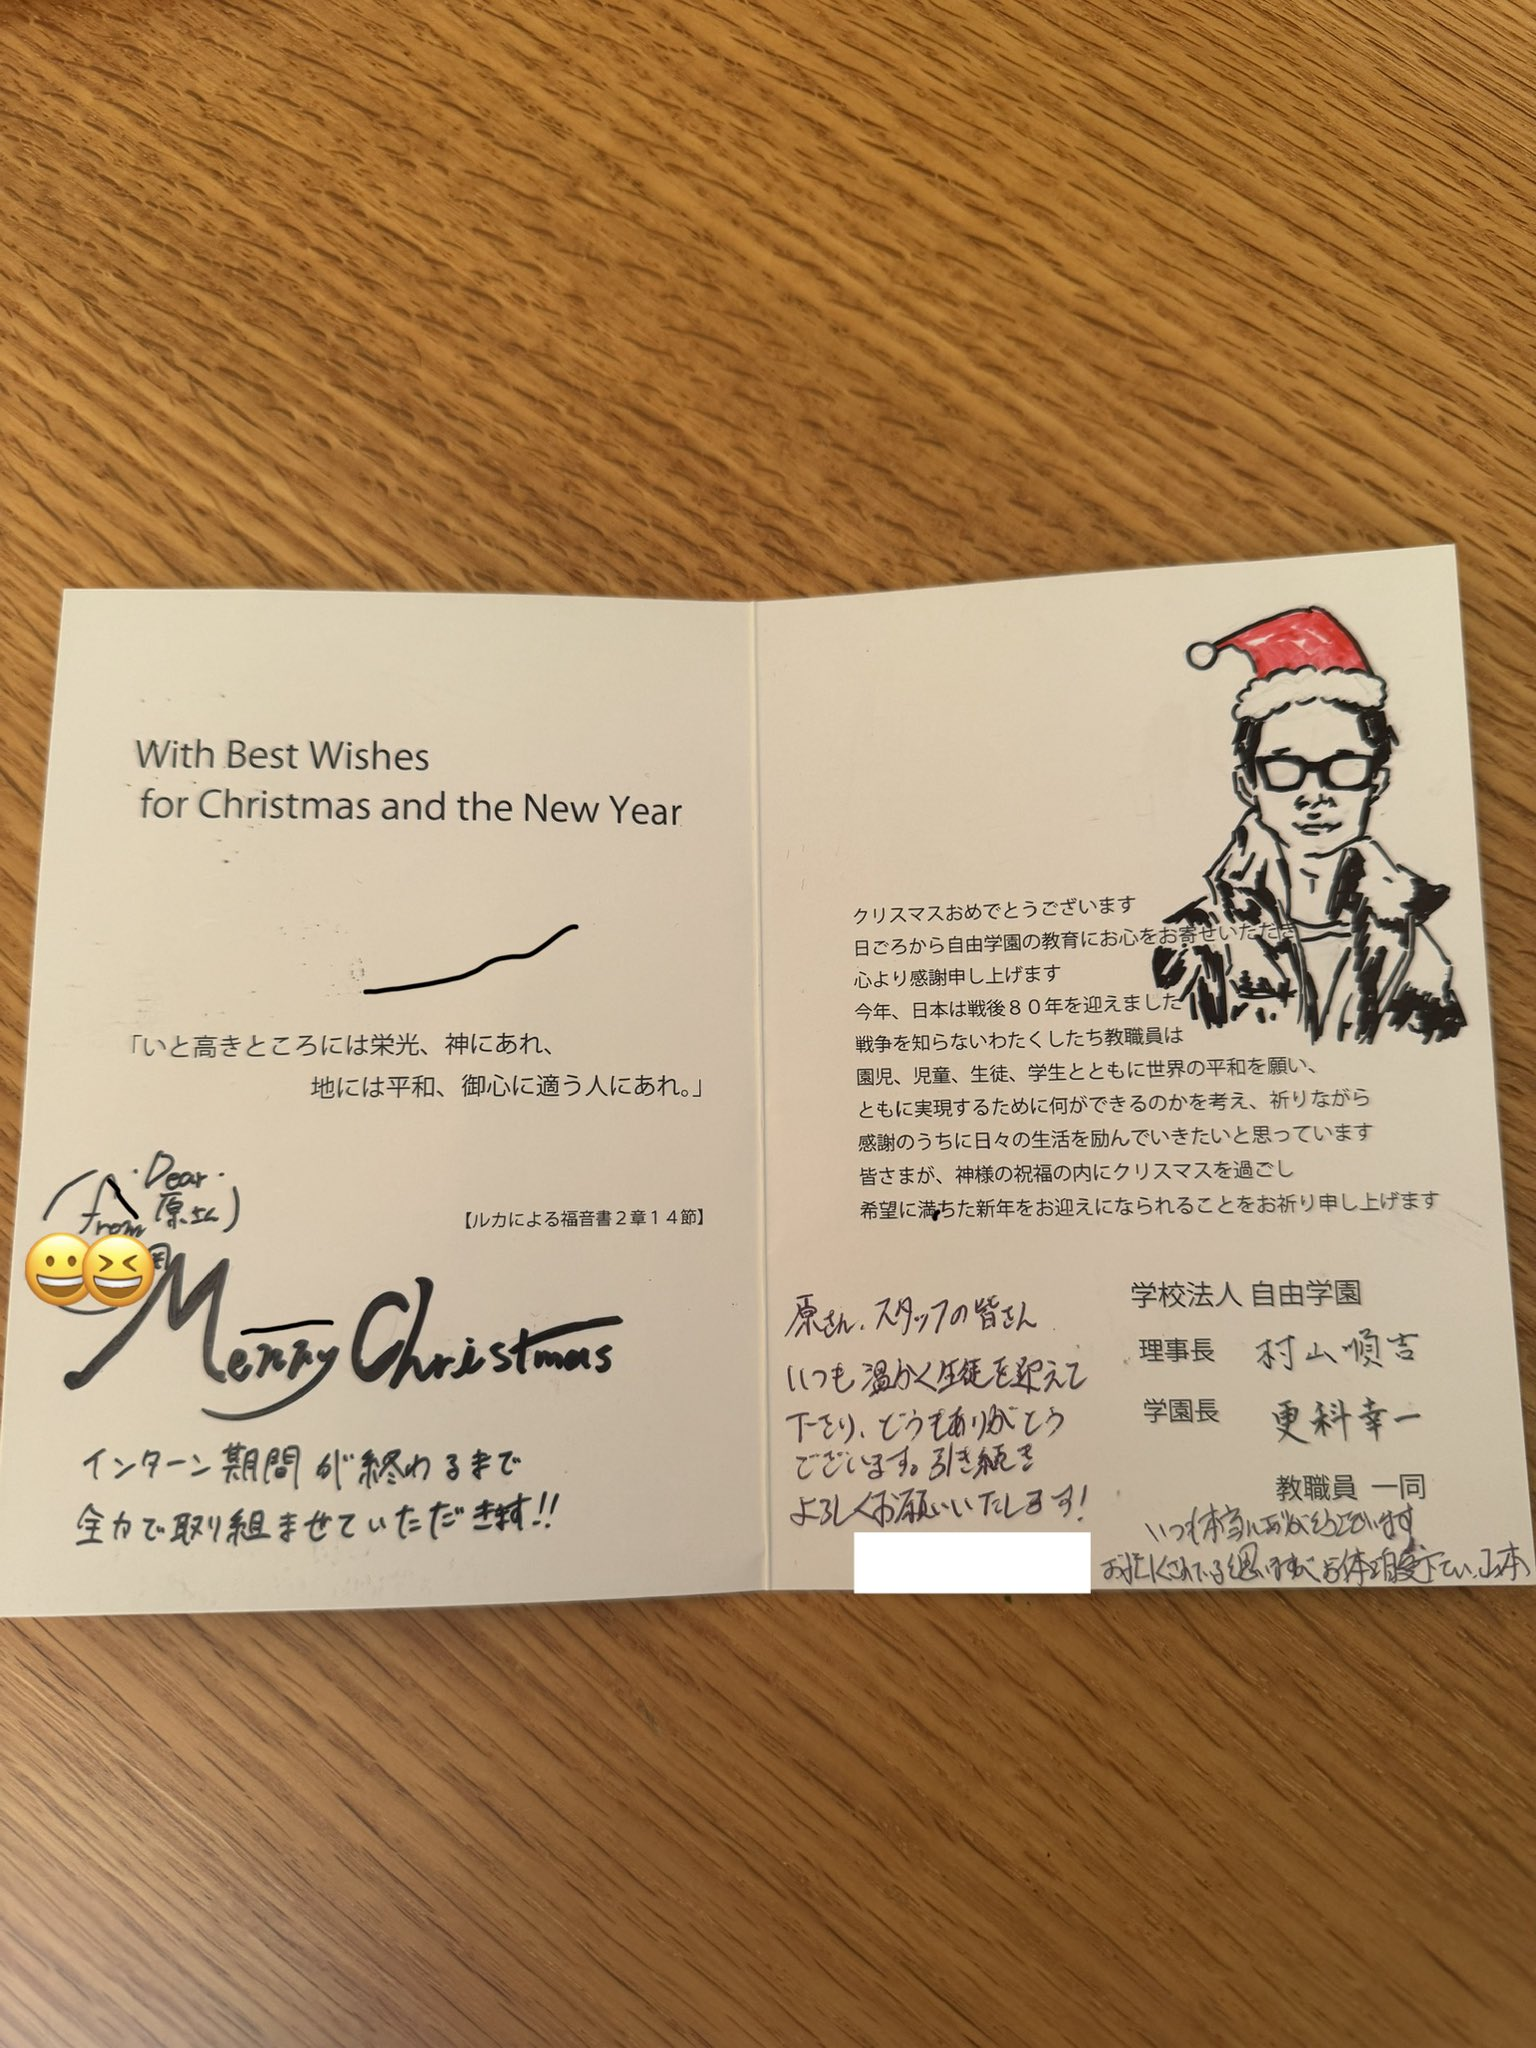 With Best Wishes
for Christmas and the New Year
「いと高きところには栄光、神にあれ、
地には平和、御心に適う人にあれ。」
【ルカによる福音書2章14節】
Dear
原さん
from
Merry Christmas
インターン期間が終わるまで
全力で取り組ませていただきます!!
クリスマスおめでとうございます
日ごろから自由学園の教育にお心をお寄せいただき
心より感謝申し上げます
今年、日本は戦後80年を迎えました
戦争を知らないわたくしたち教職員は
園児、児童、生徒、学生とともに世界の平和を願い、
ともに実現するために何ができるのかを考え、祈りながら
感謝のうちに日々の生活を励んでいきたいと思っています
皆さまが、神様の祝福の内にクリスマスを過ごし
希望に満ちた新年をお迎えになられることをお祈り申し上げます
学校法人 自由学園
理事長 村山順吉
学園長 更科幸一
教職員 一同
原さん、スタッフの皆さん
いつも温かく生徒を迎えて
下さり、どうもありがとう
ございます。引き続き
よろしくお願いいたします!
いつも本当にありがとうございます
お忙しくされていると思いますがお体ご自愛下さい。山本